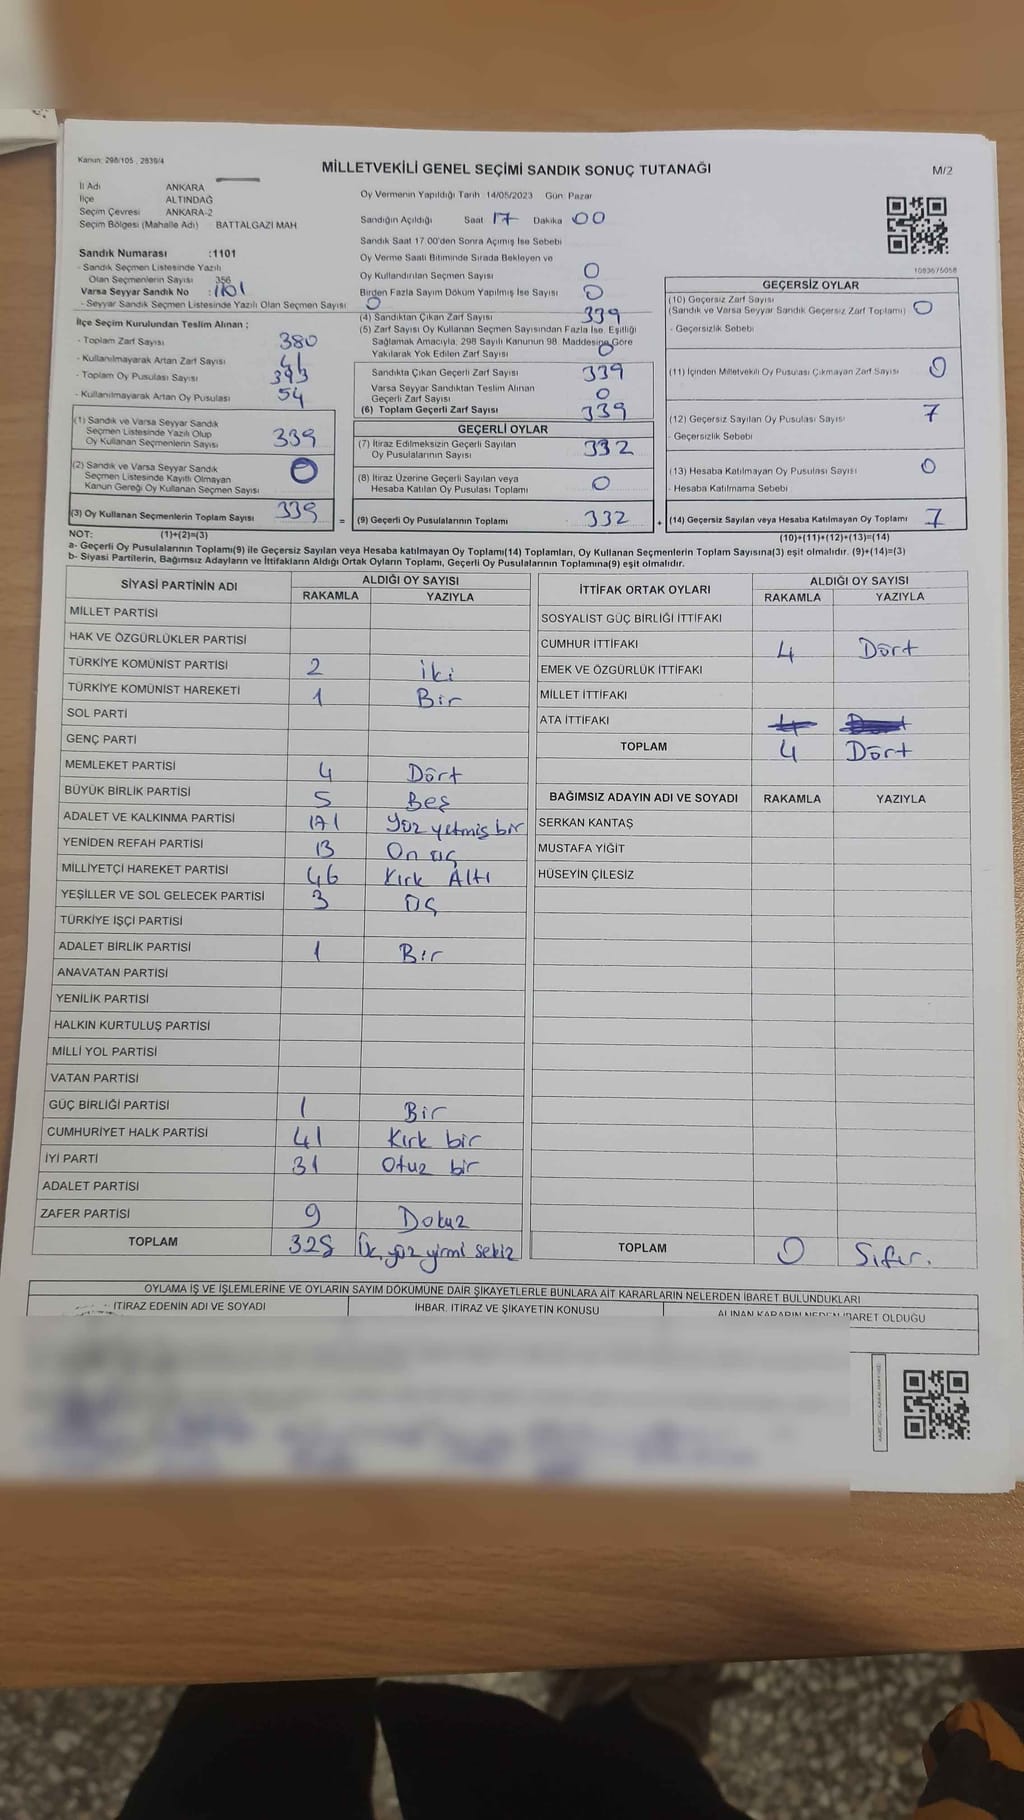 Kanun: 298/105 , 2839/4
MİLLETVEKİLİ GENEL SEÇİMİ SANDIK SONUÇ TUTANAĞI
M/2
İl Adı ANKARA
İlçe ALTINDAĞ
Seçim Çevresi ANKARA-2
Seçim Bölgesi (Mahalle Adı) BATTALGAZI MAH
Oy Vermenin Yapıldığı Tarih 14/05/2023 Gün Pazar
Sandığın Açıldığı Saat 17 Dakika 00
Sandık Saat 17.00'den Sonra Açımış İse Sebebi
Oy Verme Saati Bitiminde Sırada Bekleyen ve
Oy Kullandırılan Seçmen Sayısı 0
Birden Fazla Sayım Döküm Yapılmış İse Sayısı 0
Sandık Numarası :1101
- Sandık Seçmen Listesinde Yazılı
Olan Seçmenlerin Sayısı 356
Varsa Seyyar Sandık No : 1101
- Seyyar Sandık Seçmen Listesinde Yazılı Olan Seçmen Sayısı 0
İlçe Seçim Kurulundan Teslim Alınan ;
- Toplam Zarf Sayısı 380
- Kullanılmayarak Artan Zarf Sayısı 41
- Toplam Oy Pusulası Sayısı 393
- Kullanılmayarak Artan Oy Pusulası 54
(1) Sandık ve Varsa Seyyar Sandık
Seçmen Listesinde Yazılı Olup
Oy Kullanan Seçmenlerin Sayısı 339
(2) Sandık ve Varsa Seyyar Sandık
Seçmen Listesinde Kayıtlı Olmayan
Kanun Gereği Oy Kullanan Seçmen Sayısı 0
(3) Oy Kullanan Seçmenlerin Toplam Sayısı 339
(4) Sandıktan Çıkan Zarf Sayısı 339
(5) Zarf Sayısı Oy Kullanan Seçmen Sayısından Fazla İse, Eşitliği
Sağlamak Amacıyla; 298 Sayılı Kanunun 98. Maddesine Göre
Yakılarak Yok Edilen Zarf Sayısı 0
Sandıkta Çıkan Geçerli Zarf Sayısı 339
Varsa Seyyar Sandıktan Teslim Alınan
Geçerli Zarf Sayısı 0
(6) Toplam Geçerli Zarf Sayısı 339
GEÇERLİ OYLAR
(7) İtiraz Edilmeksizin Geçerli Sayılan
Oy Pusulalarının Sayısı 332
(8) İtiraz Üzerine Geçerli Sayılan veya
Hesaba Katılan Oy Pusulası Toplamı 0
= (9) Geçerli Oy Pusulalarının Toplamı 332
1093675058
GEÇERSİZ OYLAR
(10) Geçersiz Zarf Sayısı
(Sandık ve Varsa Seyyar Sandık Geçersiz Zarf Toplamı) 0
- Geçersizlik Sebebi
(11) İçinden Milletvekili Oy Pusulası Çıkmayan Zarf Sayısı 0
(12) Geçersiz Sayılan Oy Pusulası Sayısı 7
- Geçersizlik Sebebi
(13) Hesaba Katılmayan Oy Pusulası Sayısı 0
- Hesaba Katılmama Sebebi
+ (14) Geçersiz Sayılan veya Hesaba Katılmayan Oy Toplamı 7
NOT: (1)+(2)=(3)
(10)+(11)+(12)+(13)=(14)
a- Geçerli Oy Pusulalarının Toplamı(9) ile Geçersiz Sayılan veya Hesaba katılmayan Oy Toplamı(14) Toplamları, Oy Kullanan Seçmenlerin Toplam Sayısına(3) eşit olmalıdır. (9)+(14)=(3)
b- Siyasi Partilerin, Bağımsız Adayların ve İttifakların Aldığı Ortak Oyların Toplamı, Geçerli Oy Pusulalarının Toplamına(9) eşit olmalıdır.
SİYASİ PARTİNİN ADI ALDIĞI OY SAYISI
RAKAMLA YAZIYLA
MİLLET PARTİSİ
HAK VE ÖZGÜRLÜKLER PARTİSİ
TÜRKİYE KOMÜNİST PARTİSİ 2 İki
TÜRKİYE KOMÜNİST HAREKETİ 1 Bir
SOL PARTİ
GENÇ PARTİ
MEMLEKET PARTİSİ 4 Dört
BÜYÜK BİRLİK PARTİSİ 5 Beş
ADALET VE KALKINMA PARTİSİ 171 Yüz yetmiş bir
YENİDEN REFAH PARTİSİ 13 On üç
MİLLİYETÇİ HAREKET PARTİSİ 46 Kırk Altı
YEŞİLLER VE SOL GELECEK PARTİSİ 3 Üç
TÜRKİYE İŞÇİ PARTİSİ
ADALET BİRLİK PARTİSİ 1 Bir
ANAVATAN PARTİSİ
YENİLİK PARTİSİ
HALKIN KURTULUŞ PARTİSİ
MİLLİ YOL PARTİSİ
VATAN PARTİSİ
GÜÇ BİRLİĞİ PARTİSİ 1 Bir
CUMHURİYET HALK PARTİSİ 41 Kırk bir
İYİ PARTİ 31 Otuz bir
ADALET PARTİSİ
ZAFER PARTİSİ 9 Dokuz
TOPLAM 328 Üç yüz yirmi sekiz
İTTİFAK ORTAK OYLARI ALDIĞI OY SAYISI
RAKAMLA YAZIYLA
SOSYALIST GÜÇ BİRLİĞİ İTTİFAKI
CUMHUR İTTİFAKI 4 Dört
EMEK VE ÖZGÜRLÜK İTTİFAKI
MİLLET İTTİFAKI
ATA İTTİFAKI
TOPLAM 4 Dört
BAĞIMSIZ ADAYIN ADI VE SOYADI RAKAMLA YAZIYLA
SERKAN KANTAŞ
MUSTAFA YİĞİT
HÜSEYİN ÇİLESİZ
TOPLAM 0 Sıfır.
OYLAMA İŞ VE İŞLEMLERİNE VE OYLARIN SAYIM DÖKÜMÜNE DAİR ŞİKAYETLERLE BUNLARA AİT KARARLARIN NELERDEN İBARET BULUNDUKLARI
İTİRAZ EDENİN ADI VE SOYADI İHBAR, İTİRAZ VE ŞİKAYETİN KONUSU ALINAN KARARIN NEDEN İBARET OLDUĞU